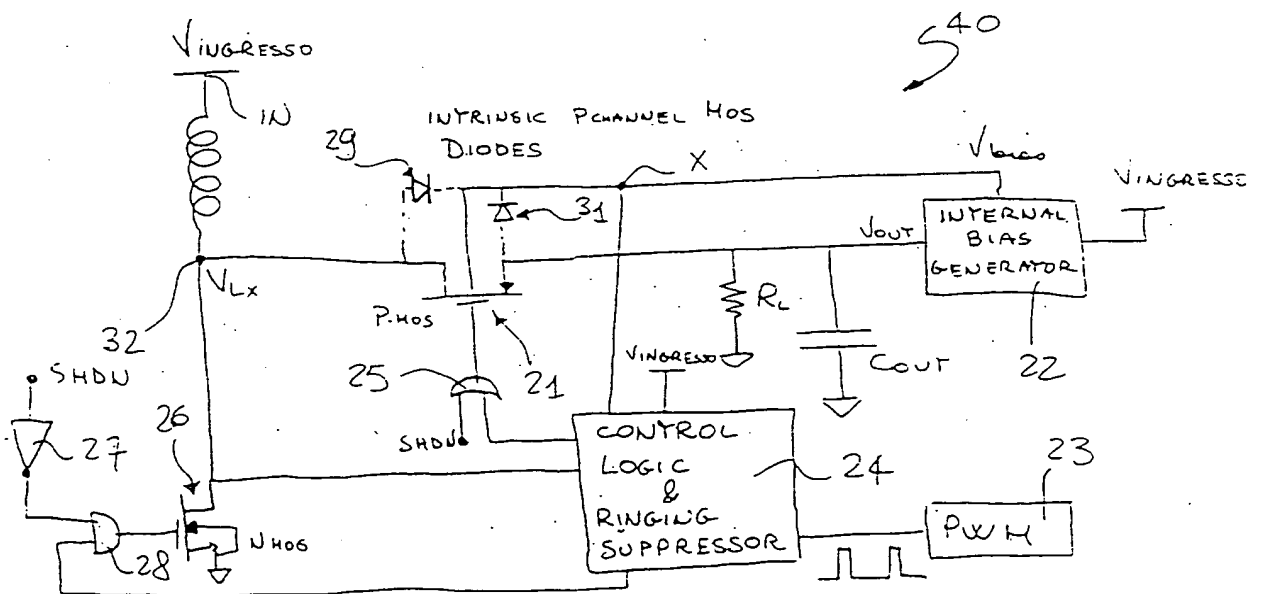 40
VINGRESSO
IN
INTRINSIC PCHANNEL MOS
DIODES
29
X
Vbias
VINGRESSE
31
INTERNAL
BIAS
GENERATOR
VOUT
VLX
32
P.MOS
RL
COUT
22
SHDN
25
21
VINGRESSO
27
26
SHDN
CONTROL
LOGIC
&
RINGING
SUPPRESSOR
24
23
PWM
28
NMOS